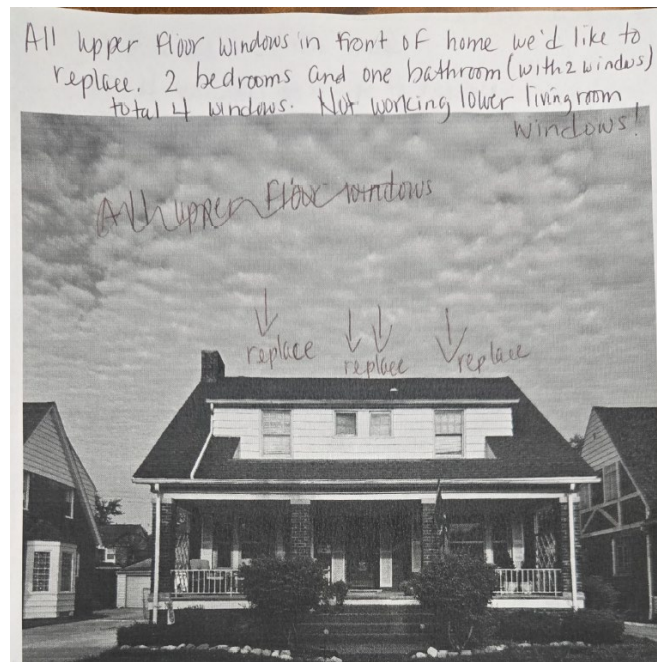 All upper Floor windows in front of home we'd like to
replace. 2 bedrooms and one bathroom (with 2 windows)
total 4 windows. Not working lower livingroom
windows!
All upper Floor windows
replace
replace
replace